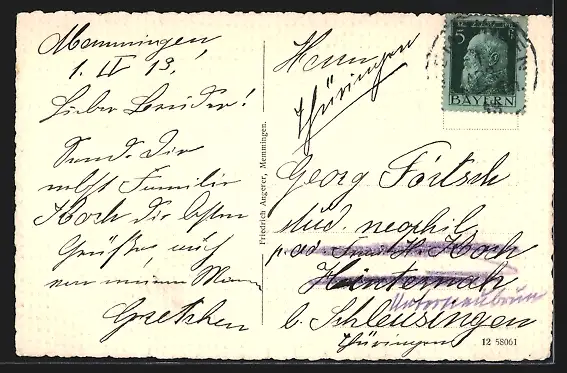 Memmingen
1. IV 13.
Lieber Bruder!
Send. Dir
nebst Familie
Koch die besten
Grüße auch
von meinem Mann
Gretchen
Friedrich Angerer, Memmingen.
Herrn
Thüringen
Georg Förtsch
stud. neophil.
p. ad. Frau H. Koch
Hinternah
Unterneubrunn
b. Schleusingen
Thüringen
12 58061
5 5
BAYERN